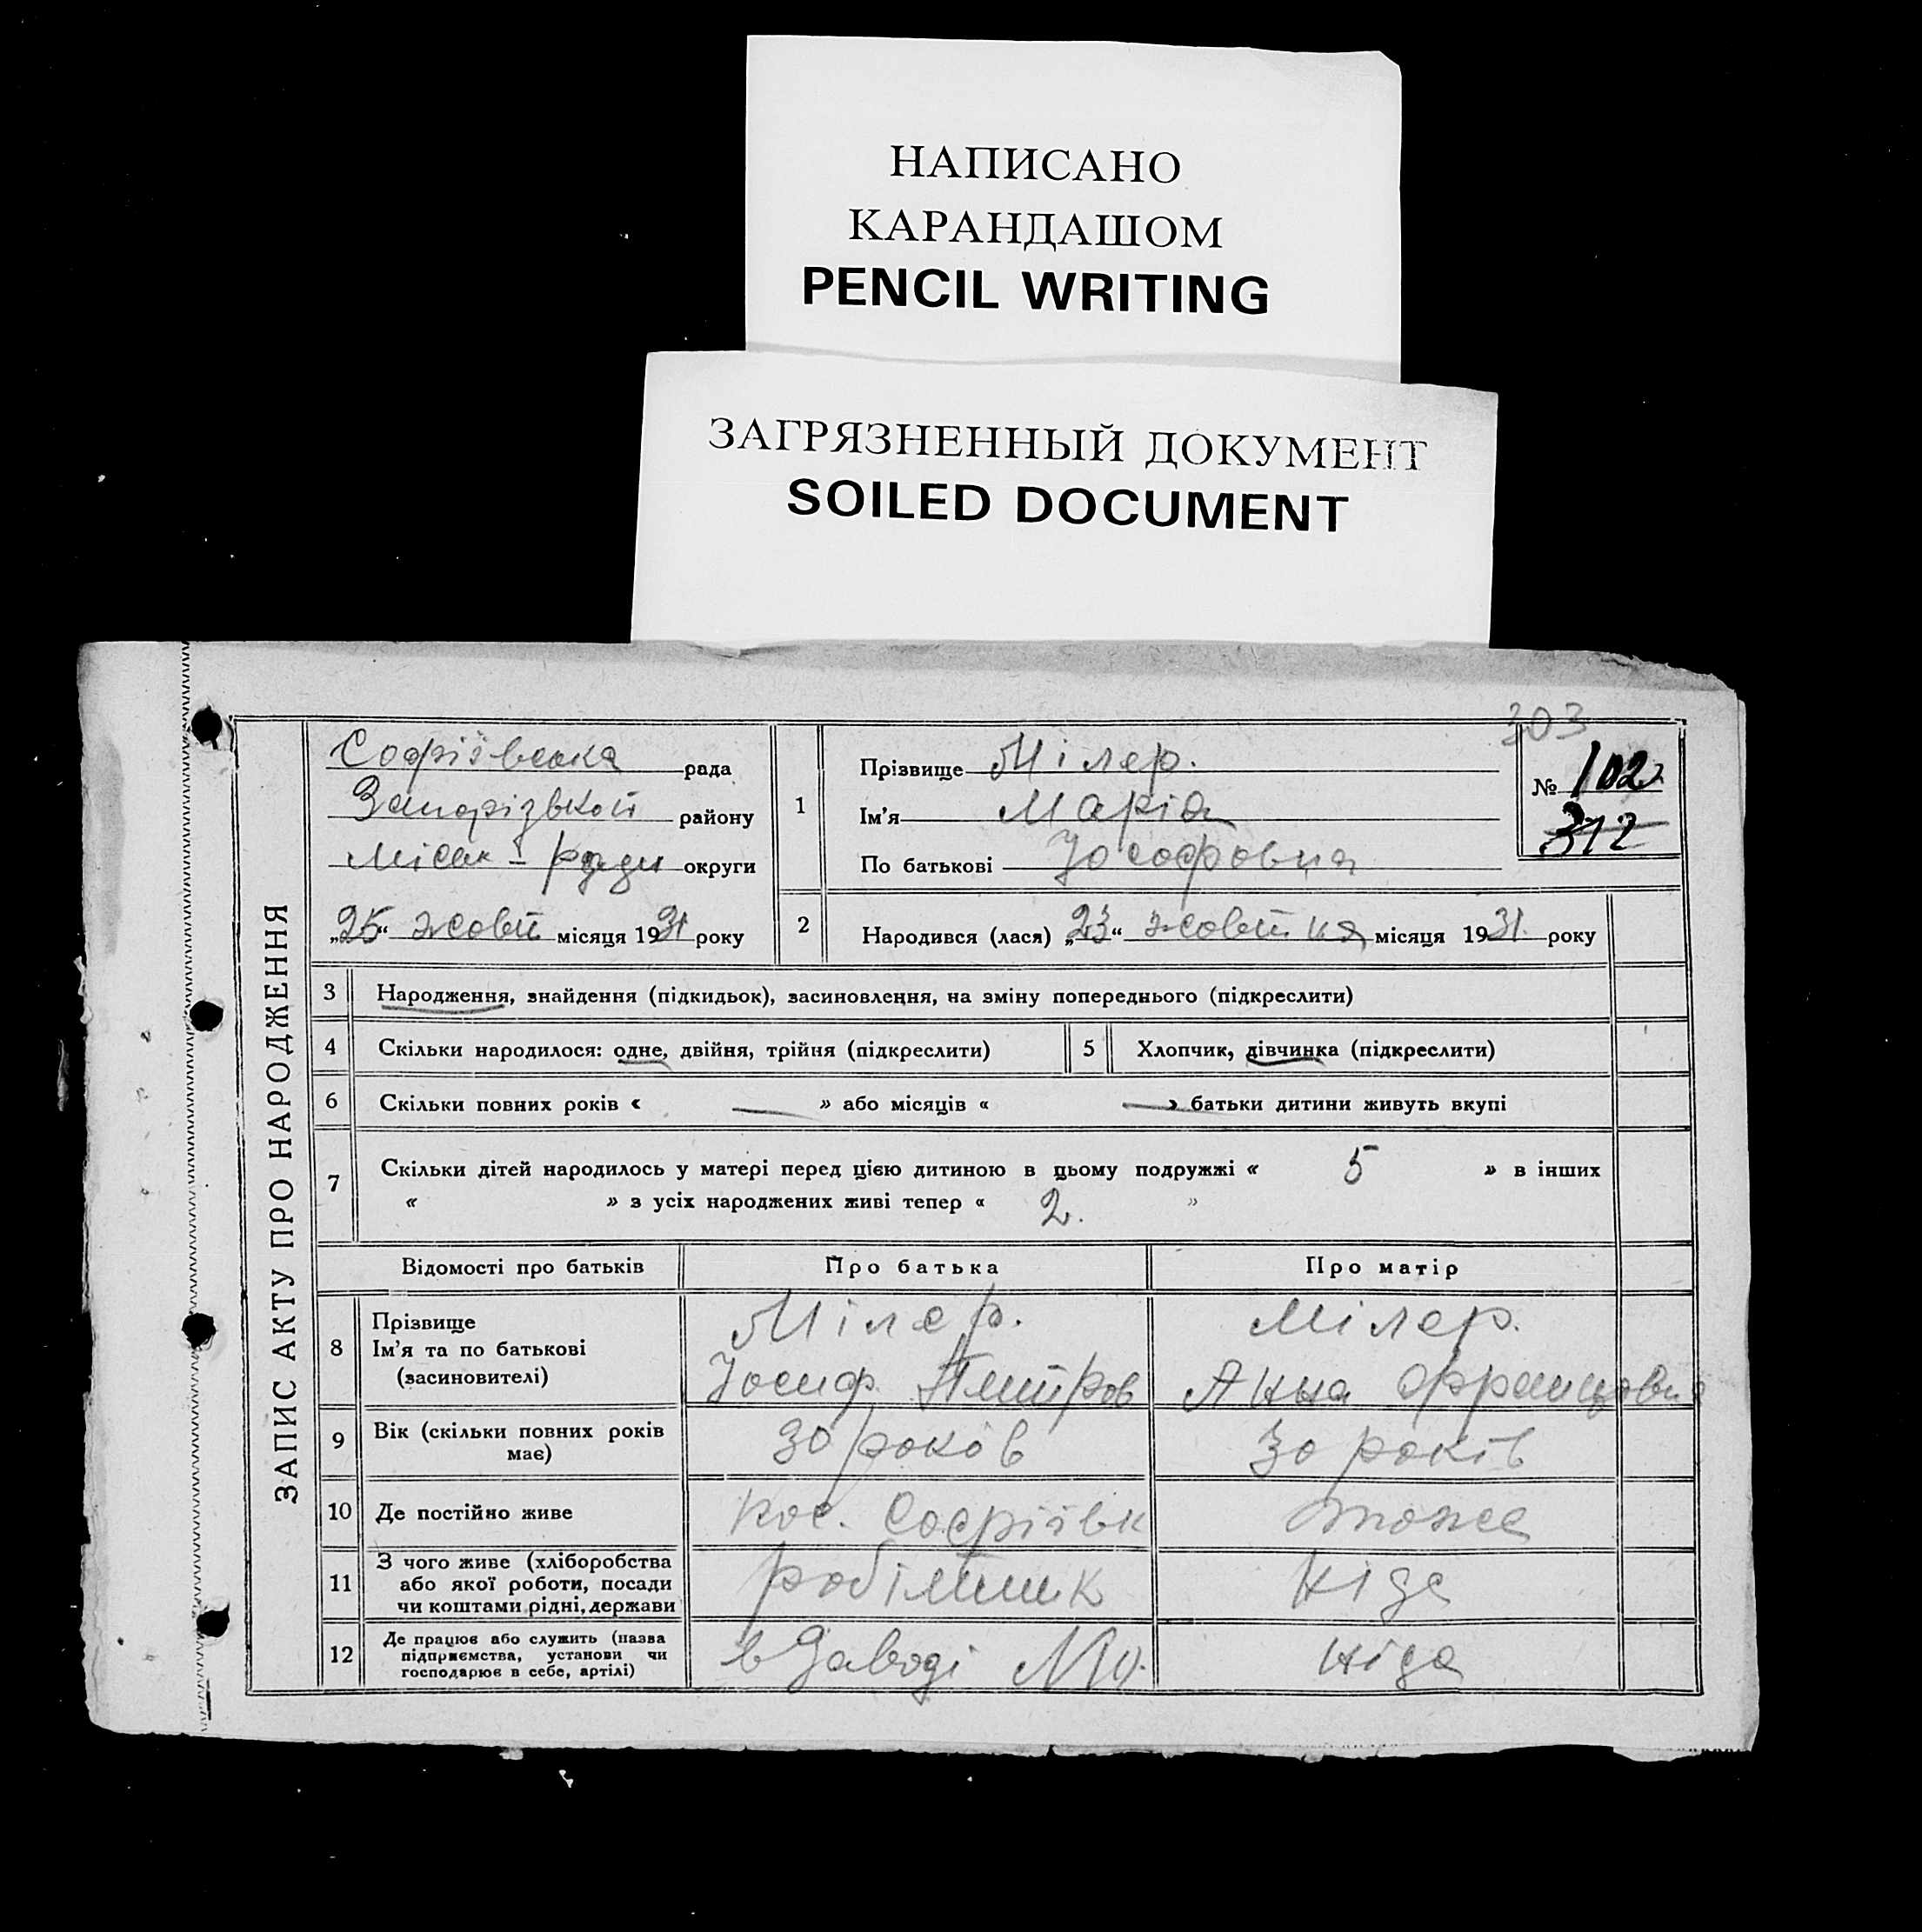 НАПИСАНО
КАРАНДАШОМ
PENCIL WRITING
ЗАГРЯЗНЕННЫЙ ДОКУМЕНТ
SOILED DOCUMENT
303
ЗАПИС АКТУ ПРО НАРОДЖЕННЯ
Софіївська рада
Запорізької району
Міськ ради округи
„25“ жовт місяця 1931 року
1 Прізвище Мілер.
Ім'я Марія
По батькові Йосифовна
№ 102
312
2 Народився (лася) „23“ жовтня місяця 1931 року
3 Народження, знайдення (підкидьок), засиновлення, на зміну попереднього (підкреслити)
4 Скільки народилося: одне, двійня, трійня (підкреслити) 5 Хлопчик, дівчинка (підкреслити)
6 Скільки повних років « — » або місяців « — » батьки дитини живуть вкупі
7 Скільки дітей народилось у матері перед цією дитиною в цьому подружжі « 5 » в інших
« » з усіх народжених живі тепер « 2. »
Відомості про батьків Про батька Про матір
8 Прізвище
Ім'я та по батькові
(засиновителі)
Мілер.
Йосиф
Мілер.
Анна Францовна
9 Вік (скільки повних років
має)
30 років
30 років
10 Де постійно живе пос. Софіївк тоже
11 З чого живе (хліборобства
або якої роботи, посади
чи коштами рідні, держави
робітник
ніде
12 Де працює або служить (назва
підприємства, установи чи
господарює в себе, артілі)
в Заводі
ніде